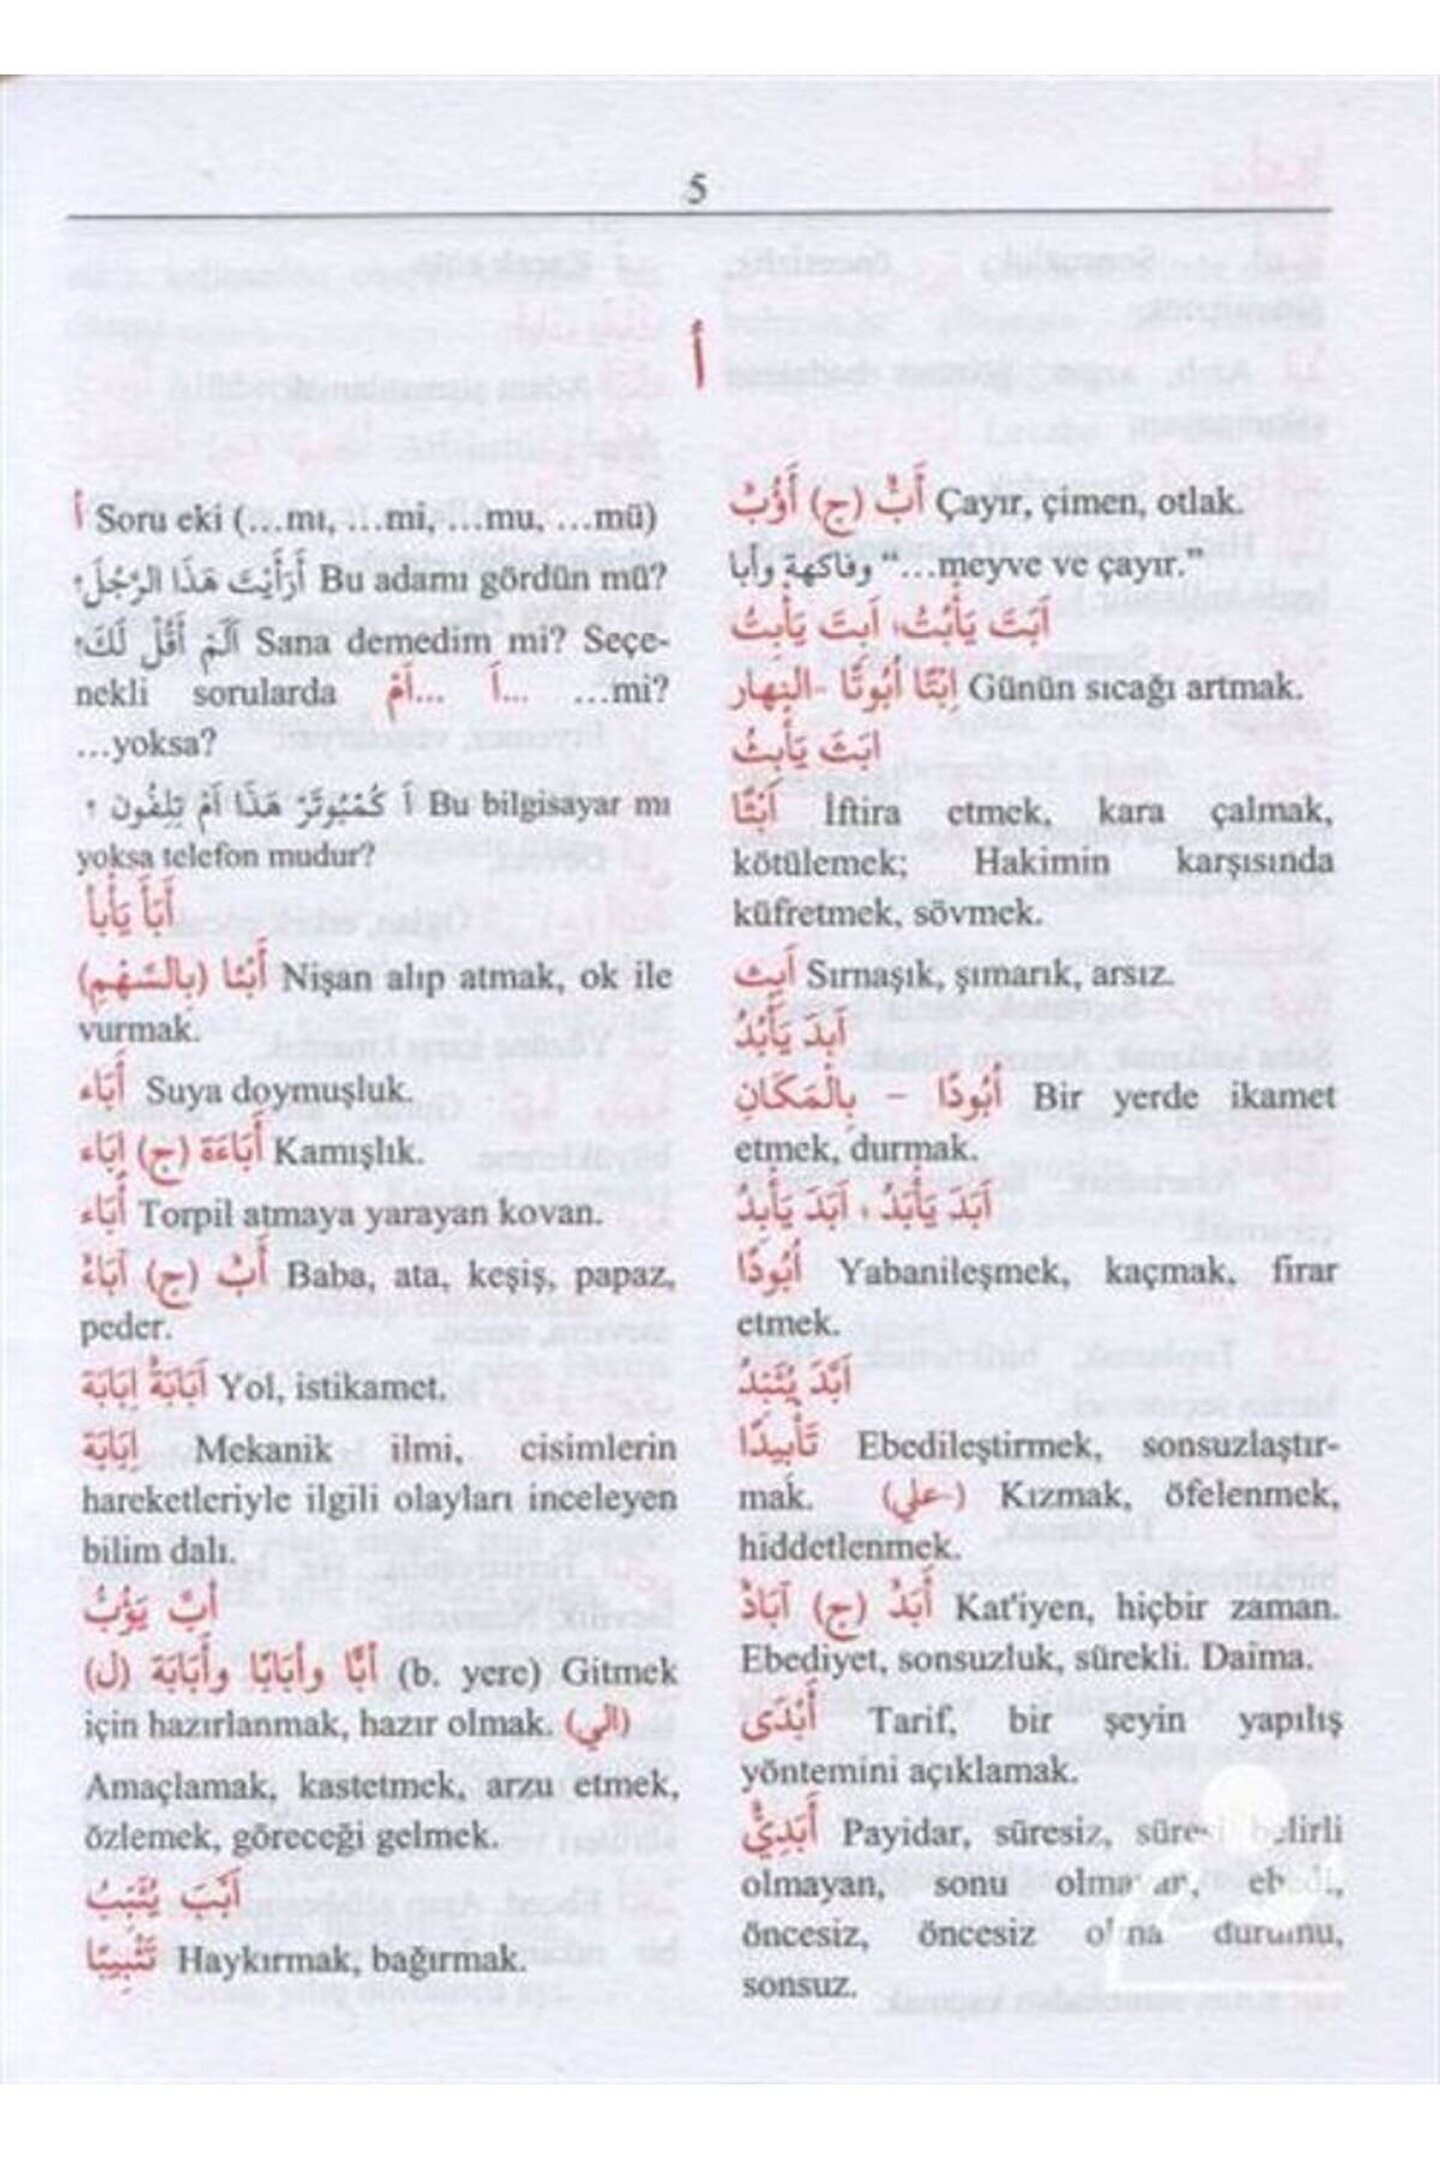 5
أ
أ Soru eki (…mı, …mi, …mu, …mü)
أَرَأَيْتَ هَذَا الرَّجُلَ؟ Bu adamı gördün mü?
أَلَمْ أَقُلْ لَكَ؟ Sana demedim mi? Seçe-
nekli sorularda أَ... أَمْ... …mi?
…yoksa?
أَ كُمْبُيوتَرْ هَذَا أَمْ تِلِفُون ؟ Bu bilgisayar mı
yoksa telefon mudur?
أَبَأَ يَأْبأ
أَبْئا (بِالسَّهْمِ) Nişan alıp atmak, ok ile
vurmak.
أَبَاء Suya doymuşluk.
أَبَاءَة (ج) إبَاء Kamışlık.
أَبَاء Torpil atmaya yarayan kovan.
أَبٌ (ج) آبَاءٌ Baba, ata, keşiş, papaz,
peder.
أَبَابَةٌ إبَابَة Yol, istikamet.
إبَابَة Mekanik ilmi, cisimlerin
hareketleriyle ilgili olayları inceleyen
bilim dalı.
أبَّ يَؤُبُّ
أبًّا وأبَابًا وأَبَابَة (ل) (b. yere) Gitmek
için hazırlanmak, hazır olmak. (الي)
Amaçlamak, kastetmek, arzu etmek,
özlemek, göreceği gelmek.
أَبَّبَ يُئَبِّبُ
تَئْبِيبًا Haykırmak, bağırmak.
أَبٌّ (ج) أَؤُبٌّ Çayır, çimen, otlak.
وفاكهة وأبا “…meyve ve çayır.”
أَبَتَ يَأْبُتُ، أَبِتَ يَأْبِتُ
إبْتًا أُبُوتًا -النهار Günün sıcağı artmak.
ابَثَ يَأْبِثُ
أَبْثًا İftira etmek, kara çalmak,
kötülemek; Hakimin karşısında
küfretmek, sövmek.
أَبِث Sırnaşık, şımarık, arsız.
أَبِدَ يَأْبُدُ
أُبُودًا – بِالْمَكَانِ Bir yerde ikamet
etmek, durmak.
أَبَدَ يَأْبَدُ ، أَبَدَ يَأْبِدُ
أُبُودًا Yabanileşmek, kaçmak, firar
etmek.
أَبَّدَ يُئَبِّدُ
تَأْبِيدًا Ebedileştirmek, sonsuzlaştır-
mak. (-علي) Kızmak, öfelenmek,
hiddetlenmek.
أَبَدٌ (ج) آبَادٌ Kat'iyen, hiçbir zaman.
Ebediyet, sonsuzluk, sürekli. Daima.
أَبْدَى Tarif, bir şeyin yapılış
yöntemini açıklamak.
أَبَدِيٌّ Payidar, süresiz, süresi belirli
olmayan, sonu olmayan, ebedi,
öncesiz, öncesiz olma durumu,
sonsuz.